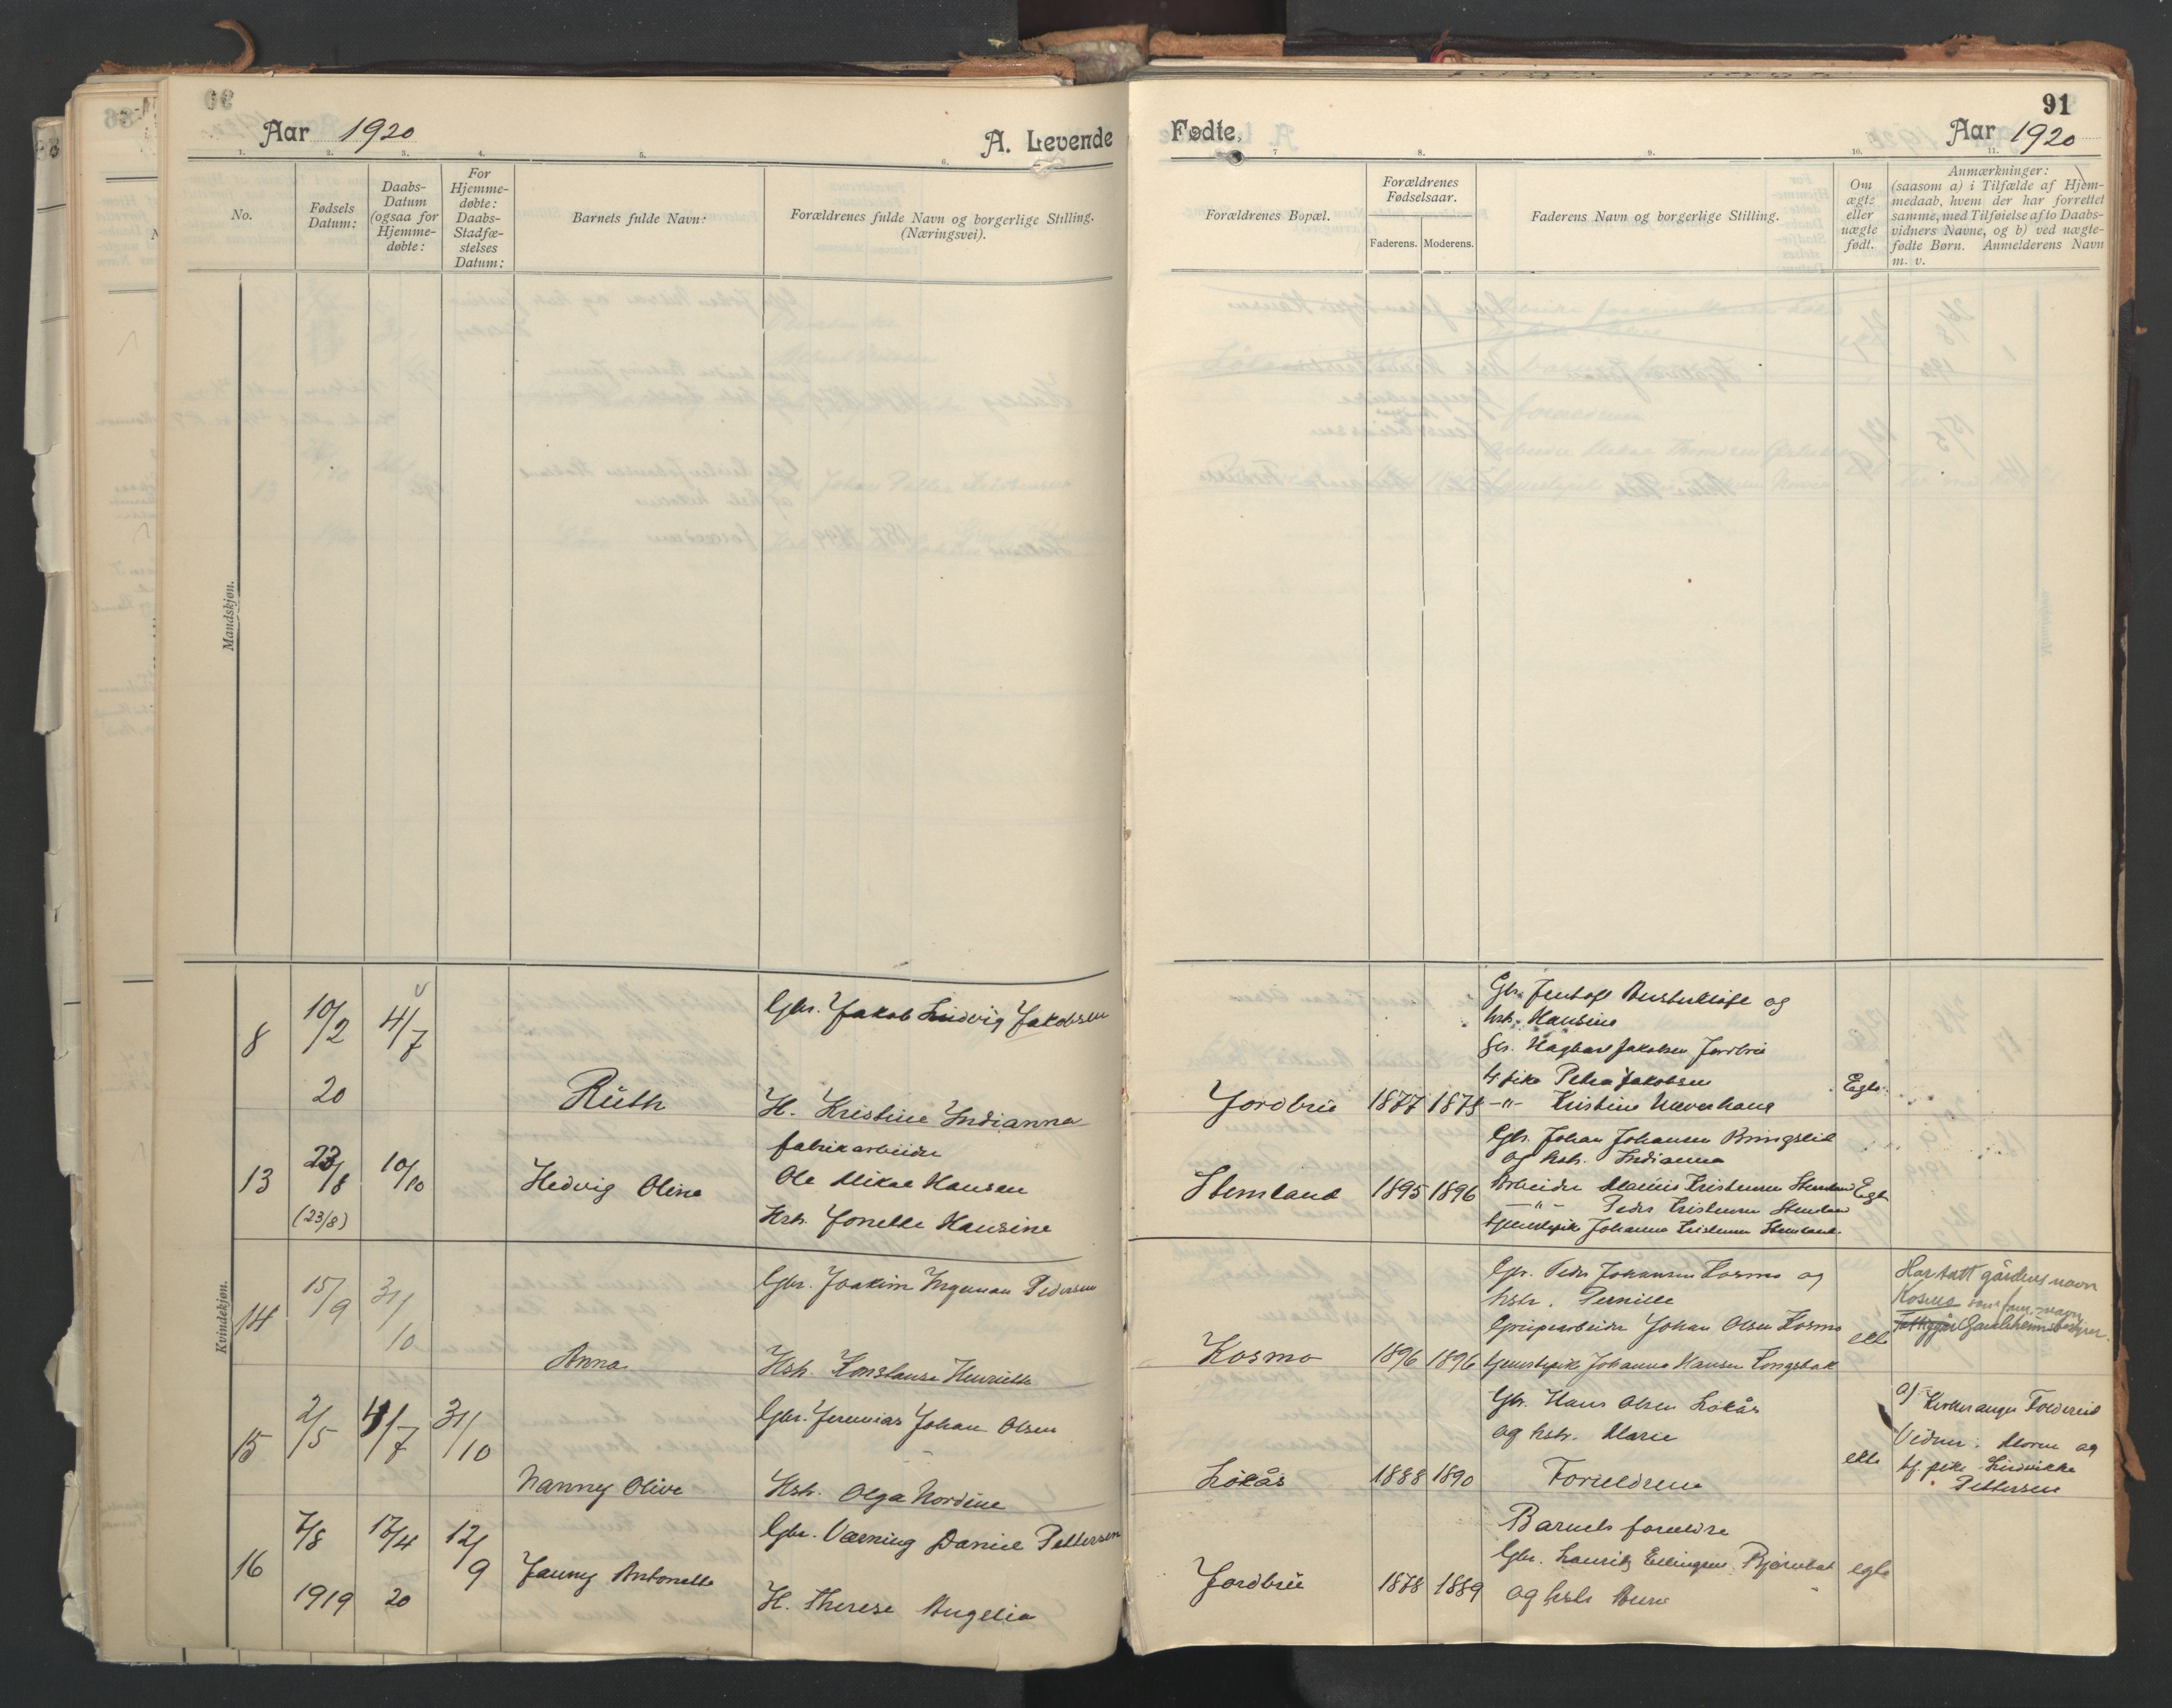 91
Aar 1920
A. Levende
Fødte,
Aar 1920
1. 2. 3. 4. 5. 6. 7 8. 9. 10. 11.
No.
Fødsels Datum:
Daabs-
Datum
(ogsaa for
Hjemme-
døbte:
For
Hjemme-
døbte:
Daabs-
Stadfæ-
stelses
Datum:
Barnets fulde Navn:
Forældrenes fulde Navn og borgerlige Stilling.
(Næringsvei).
Forældrenes Bopæl.
Forældrenes
Fødselsaar.
Faderens. Moderens.
Faderens Navn og borgerlige Stilling.
Om
ægte
eller
uægte
født.
Anmærkninger:
(saasom a) i Tilfælde af Hjem-
medaab, hvem der har forrettet
samme, med Tilføielse af to Daabs-
vidners Navne, og b) ved uægte-
fødte Børn. Anmelderens Navn
m. v.
Mandskjøn.
Kvindekjøn.
8
10/2
20
4/7
Ruth
Gbr. Jakob Ludvig Jakobsen
H. Kristine Indianna
Jordbru
1877 1878
Gbr. Jentoft
og
hstr. Hansine
Hagbart Jakobsen Jordbru
pike Petra Jakobsen
-"- Kristine Neverhaug
Egte
13
23/8
(23/8)
10/10
Hedvig Oline
fabrikarbeider
Ole Mikal Hansen
Hstr. Jonette Hansine
Stemland
1895 1896
Gbr. Johan Johansen Bringslid
og hstr. Indianna
Arbeider Marius Kristensen Stemland
-"- Peder Kristensen Stemland
tjenestepike Johanna Kristensen Stemland.
Egte
14
15/9
31/10
Anna
Gbr. Joakim Ingeman Pedersen
Hstr. Konstanse Henriette
Kosmo
1896 1896
Gbr. Peder Johansen Kosmo og
hstr. Pernille
Grubearbeider Johan Olsen Kosmo
tjenestepike Johanna Hansen Kongsbak
ekte
Har tatt gårdens navn
Kosmo som fam. navn
Gamlehjemsbestyrer.
15
2/5
4/7
31/10
Nanny Olive
Gbr. Jeremias Johan Olsen
Hstr. Olga Nordine
Løkås
1888 1890
Gbr. Hans Olsen Løkås
og hstr. Marie
Foreldrene
ekte
a) Kirkesanger Foldereid
Vidner: Moren og
tj. pike Ludvikke
Pettersen
16
7/8
1919
18/4
20
12/9
Fanny Antonette
Gbr. Værning Daniel Pettersen
H. Therese Angelia
Jordbru
1878 1889
Barnets foreldre
Gbr. Lauritz Ellingsen Bjørnbak
og hstr.
egte